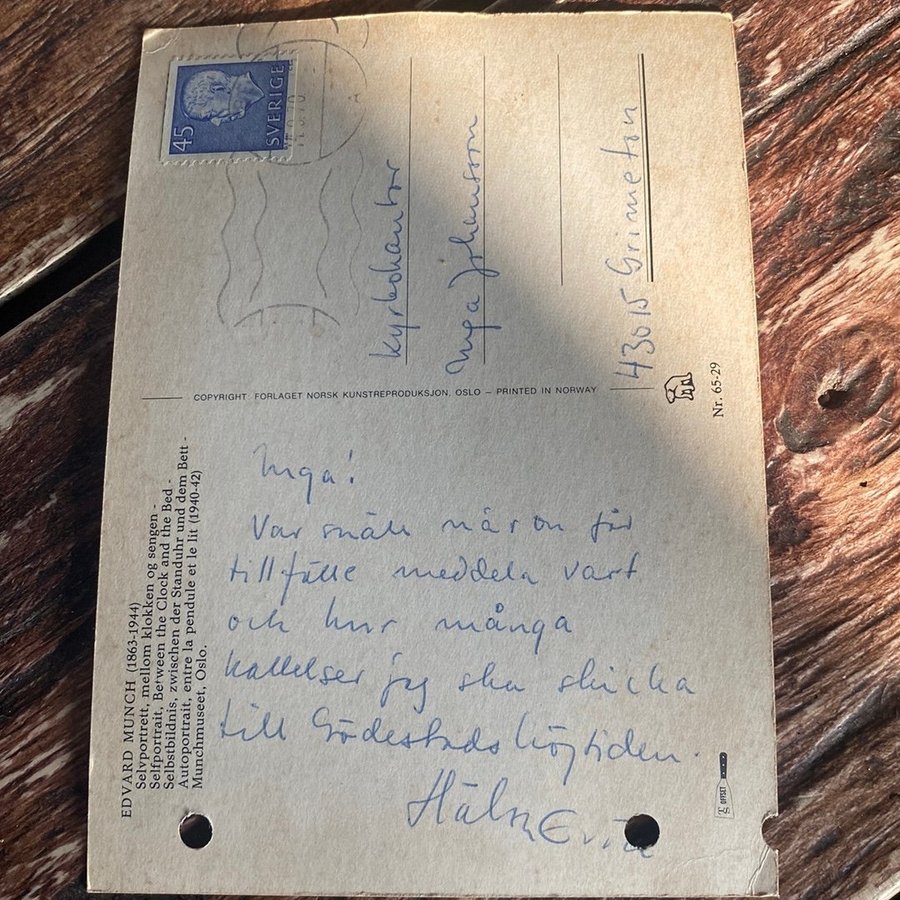 45
SVERIGE
Kyrkokantor
Inga Johansson
43015 Grimeton
COPYRIGHT: FORLAGET NORSK KUNSTREPRODUKSJON, OSLO – PRINTED IN NORWAY
Nr. 65-29
EDVARD MUNCH (1863-1944)
Selvportrett, mellom klokken og sengen -
Selfportrait, Between the Clock and the Bed -
Selbstbildnis, zwischen der Standuhr und dem Bett -
Autoportrait, entre la pendule et le lit (1940-42)
Munchmuseet, Oslo.
Inga!
Var snäll när du får
tillfälle meddela vart
och hur många
kallelser jag ska skicka
till Gödestadshögtiden.
Hälsn
OFFSET